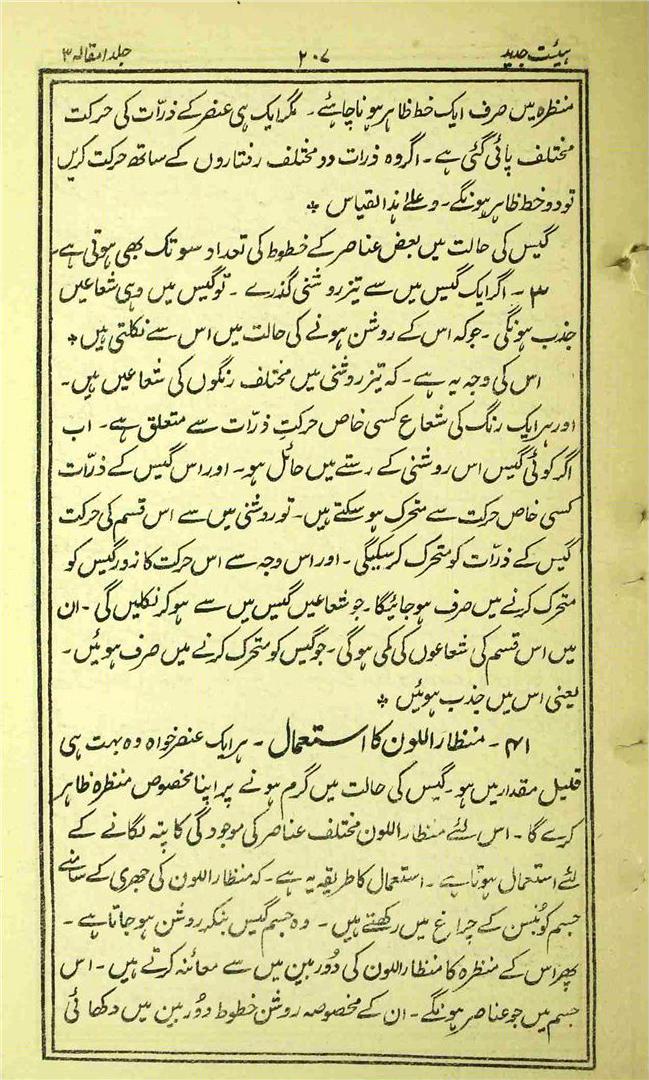 ہیئت جدید ۲۰۷ جلد ۱ مقالہ ۳
منظرہ میں صرف ایک خط ظاہر ہونا چاہئے۔ مگر ایک ہی عنصر کے ذرّات کی حرکت
مختلف پائی گئی ہے۔ اگر وہ ذرات دو مختلف رفتاروں کے ساتھ حرکت کریں
تو دو خط ظاہر ہونگے۔ و علےٰ ہذا القیاس *
گیس کی حالت میں بعض عناصر کے خطوط کی تعداد سو تک بھی ہوتی ہے۔
۳۔ اگر ایک گیس میں سے تیز روشنی گذرے۔ تو گیس میں وہی شعاعیں
جذب ہونگی۔ جو کہ اس کے روشن ہونے کی حالت میں اس سے نکلتی ہیں *
اس کی وجہ یہ ہے۔ کہ تیز روشنی میں مختلف رنگوں کی شعاعیں ہیں۔
اور ہر ایک رنگ کی شعاع کسی خاص حرکتِ ذرّات سے متعلق ہے۔ اب
اگر کوئی گیس اس روشنی کے رستے میں حائل ہو۔ اور اس گیس کے ذرّات
کسی خاص حرکت سے متحرک ہو سکتے ہیں۔ تو روشنی میں سے اس قسم کی حرکت
گیس کے ذرّات کو متحرک کرسکیگی۔ اور اس وجہ سے اس حرکت کا زور گیس کو
متحرک کرنے میں صرف ہو جائیگا۔ جو شعاعیں گیس میں سے ہو کر نکلیں گی۔ ان
میں اس قسم کی شعاعوں کی کمی ہوگی۔ جو گیس کو متحرک کرنے میں صرف ہوئیں۔
یعنی اس میں جذب ہوئیں *
۴۱۔ منظار اللون کا استعمال۔ ہر ایک عنصر خواہ وہ بہت ہی
قلیل مقدار میں ہو۔ گیس کی حالت میں گرم ہونے پر اپنا مخصوص منظرہ ظاہر
کرے گا۔ اس لئے منظار اللون مختلف عناصر کی موجودگی کا پتہ لگانے کے
لئے استعمال ہوتا ہے۔ استعمال کا طریقہ یہ ہے۔ کہ منظار اللون کی جھری کے سامنے
جسم کو بُنسن کے چراغ میں رکھتے ہیں۔ وہ جسم گیس بنکر روشن ہو جاتا ہے۔
پھر اس کے منظرہ کا منظار اللون کی دُوربین میں سے معائنہ کرتے ہیں۔ اس
جسم میں جو عناصر ہونگے۔ ان کے مخصوصہ روشن خطوط دُوربین میں دکھائی